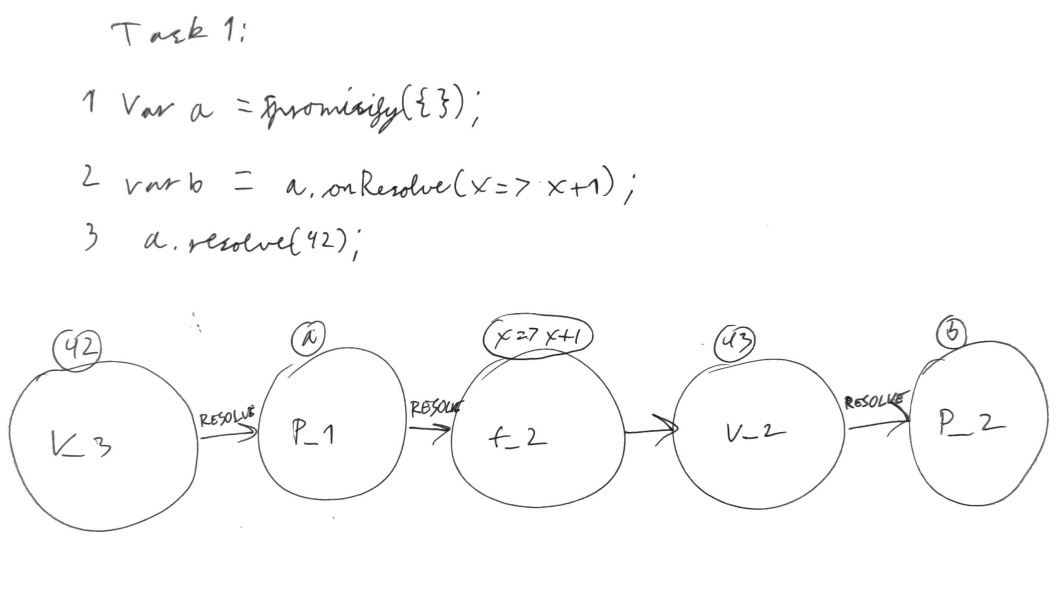 Task 1:
1 Var a = promisify({});
2 var b = a.onResolve(x=> x+1);
3 a.resolve(42);
42 a x=> x+1 43 b
V_3 RESOLVE P_1 RESOLVE f_2 V_2 RESOLVE P_2